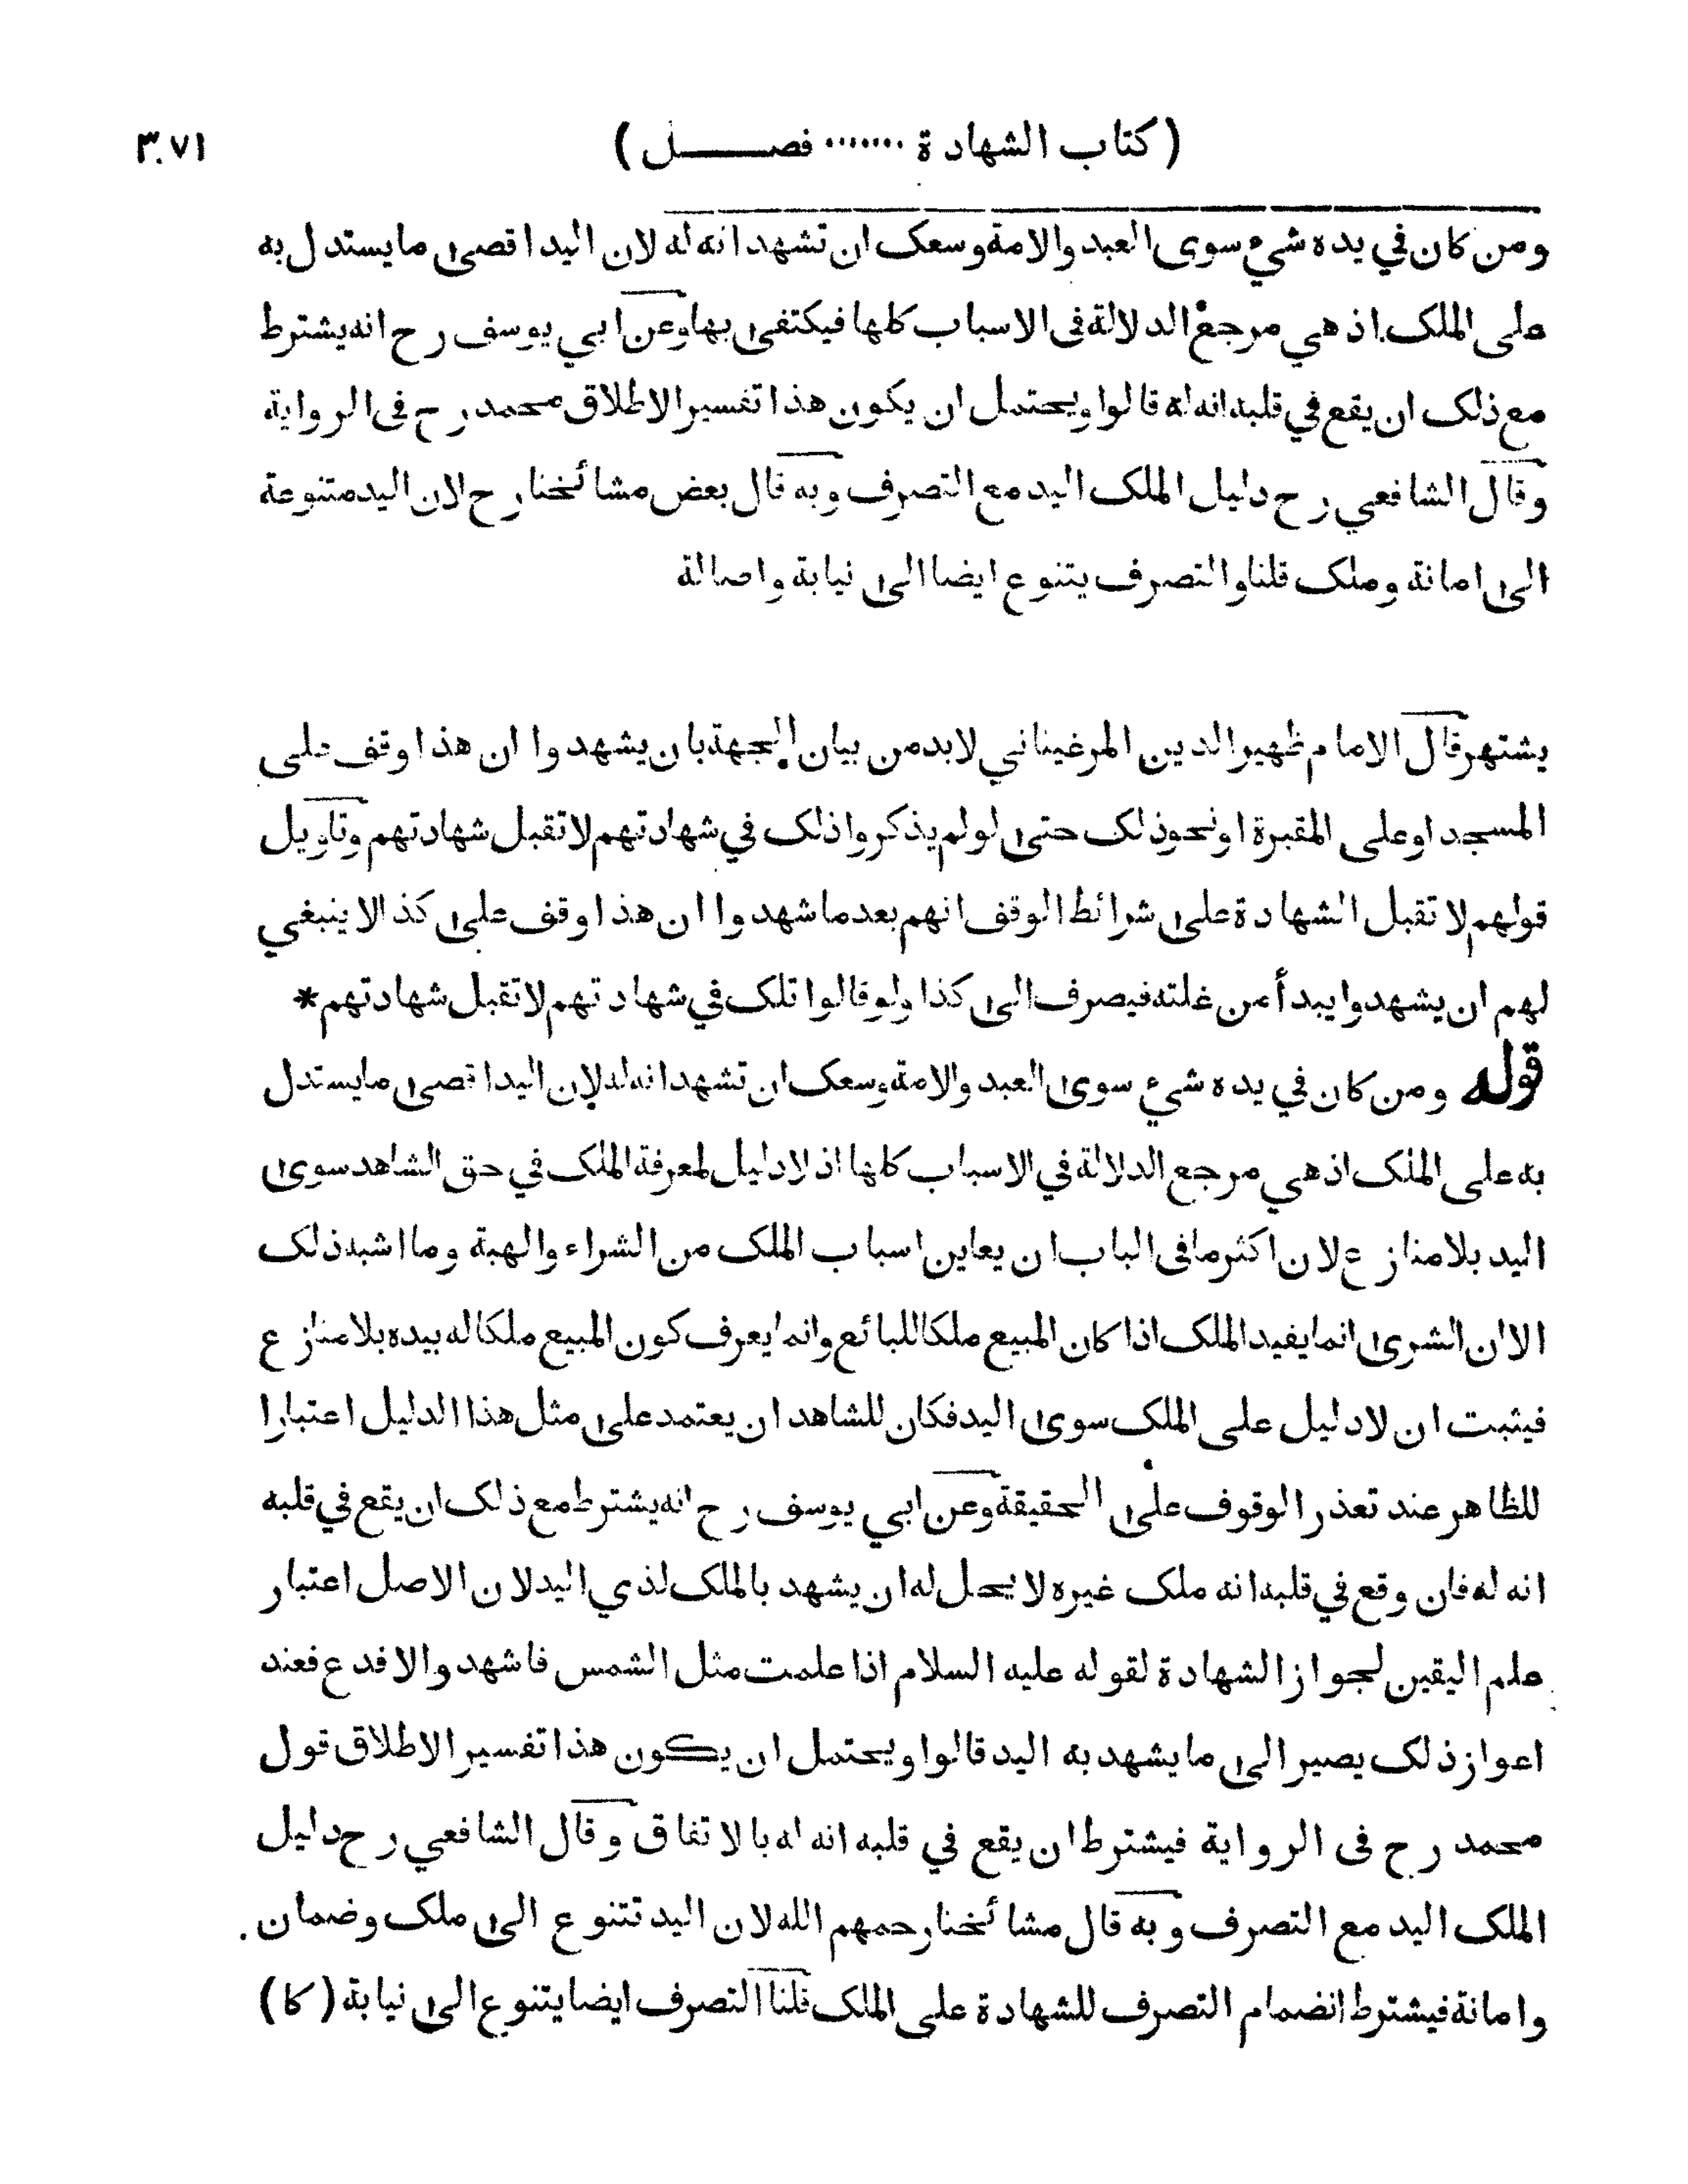 (كتاب الشهادة ....... فصــــل) ٣٠٧١
ومن كان في يده شيء سوى العبد والامة وسعك ان تشهد انه له لان اليد اقصى ما يستدل به
على الملك اذ هي مرجع الدلالة فى الاسباب كلها فيكتفى بها وعن ابي يوسف رح انه يشترط
مع ذلك ان يقع في قلبه انه له قالوا ويحتمل ان يكون هذا تفسير الاطلاق محمد رح فى الرواية
وقال الشافعي رح دليل الملك اليد مع التصرف وبه قال بعض مشائخنا رح لان اليد متنوعة
الى امانة وملك قلنا والتصرف يتنوع ايضا الى نيابة واصالة
يشتهر قال الامام ظهير الدين المرغيناني لابد من بيان الجهة بان يشهدوا ان هذا وقف على
المسجد او على المقبرة او نحو ذلك حتى لو لم يذكروا ذلك في شهادتهم لا تقبل شهادتهم وتاويل
قولهم لا تقبل الشهادة على شرائط الوقف انهم بعد ما شهدوا ان هذا وقف على كذا لا ينبغي
لهم ان يشهدوا يبدأ من غلته فيصرف الى كذا ولو قالوا تلك في شهادتهم لا تقبل شهادتهم *
قوله ومن كان في يده شيء سوى العبد والامة وسعك ان تشهد انه له لان اليد اقصى ما يستدل
به على الملك اذ هي مرجع الدلالة في الاسباب كلها اذ لا دليل لمعرفة الملك في حق الشاهد سوى
اليد بلا منازع لان اكثر ما فى الباب ان يعاين اسباب الملك من الشراء والهبة وما اشبه ذلك
الا ان الشرى انما يفيد الملك اذا كان المبيع ملكا للبائع وانما يعرف كون المبيع ملكا له بيده بلا منازع
فيثبت ان لا دليل على الملك سوى اليد فكان للشاهد ان يعتمد على مثل هذا الدليل اعتبارا
للظاهر عند تعذر الوقوف على الحقيقة وعن ابي يوسف رح انه يشترط مع ذلك ان يقع في قلبه
انه له فان وقع في قلبه انه ملك غيره لا يحل له ان يشهد بالملك لذي اليد لان الاصل اعتبار
علم اليقين لجواز الشهادة لقوله عليه السلام اذا علمت مثل الشمس فاشهد والا فدع فعند
اعواز ذلك يصير الى ما يشهد به اليد قالوا ويحتمل ان يكون هذا تفسير الاطلاق قول
محمد رح فى الرواية فيشترط ان يقع في قلبه انه له بالاتفاق وقال الشافعي رح دليل
الملك اليد مع التصرف وبه قال مشائخنا رحمهم الله لان اليد تتنوع الى ملك وضمان
وامانة فيشترط انضمام التصرف للشهادة على الملك قلنا التصرف ايضا يتنوع الى نيابة (كا)